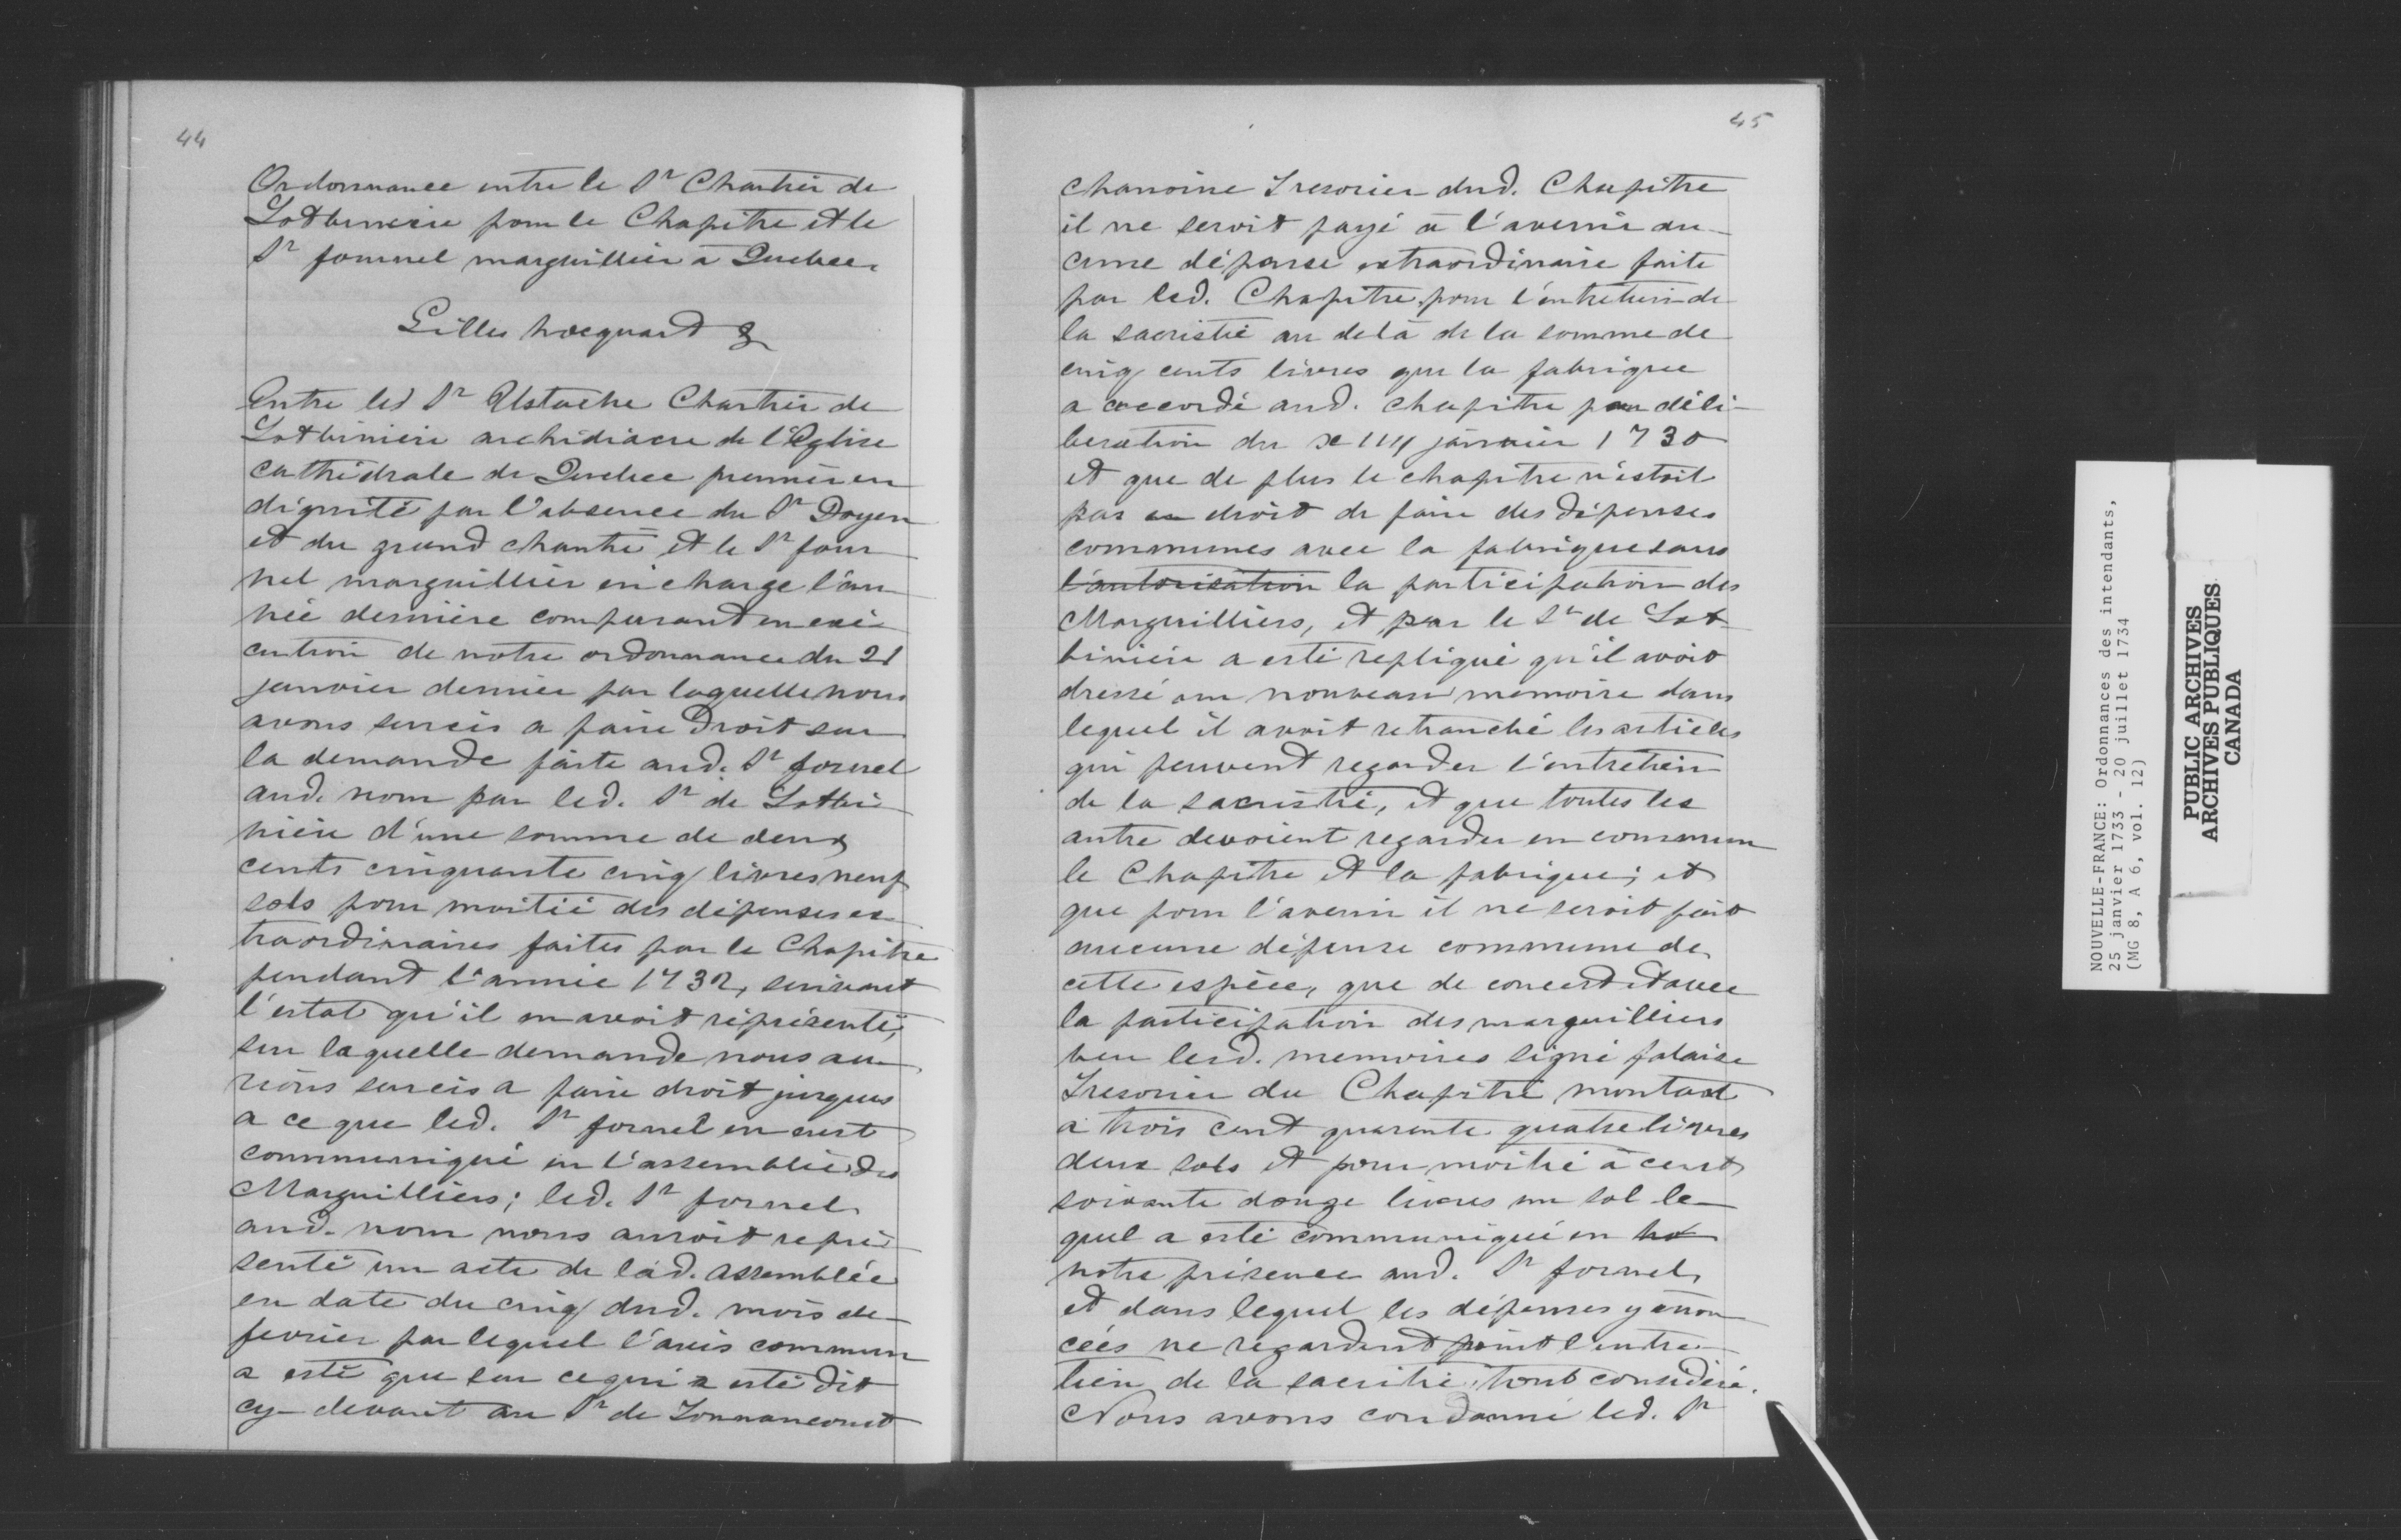 44
Ordonnance entre le Sr Chartier de
Lotbiniere pour le Chapitre et le
Sr fournel marguillier à Quebec.
Gilles hocquard &
Entre led Sr Ustache Chartier de
Lotbiniere archidiacre de l'Eglise
cathédrale de Quebec premier en
dignité par l'absence du Sr Doyen
et du grand chantre et le Sr four
nel marguillier en charge l'an
née dernière comparant en exé-
cution de notre ordonnance du 21
janvier dernier par laquelle nous
avons surcis a faire droit sur
la demande faite aud. Sr fornel
aud. nom par led. Sr de Lotbi
niere d'une somme de deux
cents cinquante cinq livres neuf
sols pour moitié des dépenses ex
traordinaires faites par le Chapitre
pendant l'année 1732, suivant
l'estat qu'il en avoit réprésenté,
sur laquelle demande nous au
rions surcis a faire droit jusques
a ce que led. Sr fornel en eust
communiqué en l'assemblée des
Marguilliers; led. Sr fornel
aud. nom nous auroit repré
senté un acte de lad. assemblée
en date du cinq dud. mois de
fevrier par lequel l'avis commun
a esté que sur ce qui a esté dit
cy-devant au Sr de Tonnancourt
45
chanoine Tresorier dud. Chapitre
il ne seroit payé à l'avenir au-
cune dépense extraordinaire faite
par led. Chapitre pour l'entretien de
la sacristie au delà de la somme de
cinq cents livres que la fabrique
a accordé aud. chapitre par déli-
beration du xiiij janvier 1730
et que de plus le chapitre n'estoit
pas en droit de faire des dépenses
communes avec la fabrique sans
l'autorisation la participation des
Marguilliers, et par le Sr de Lot
biniere a esté repliqué qu'il avoit
dressé un nouveau memoire dans
lequel il avoit retranché les articles
qui peuvent regarder l'entretien
de la sacristie, et que toutes les
autre devoient regarder en commun
le Chapitre et la fabrique; et
que pour l'avenir il ne seroit fait
aucune dépense commune de
cette espèce, que de concert et avec
la participation des marguilliers
veu lesd. memoires signé falaise
Tresorier du Chapitre montant
à trois cent quarante quatre livres
deux sols et pour moitié à cent
soixante douze livres un sol le-
quel a esté communiqué en
notre présence aud. Sr fornel
et dans lequel les dépenses y énon
cées ne regardent point l'entre-
tien de la sacritie, tout considéré.
Nous avons condamné led. Sr
NOUVELLE-FRANCE: Ordonnances des intendants,
25 janvier 1733 - 20 juillet 1734
(MG 8, A 6, vol. 12)
PUBLIC ARCHIVES
ARCHIVES PUBLIQUES
CANADA